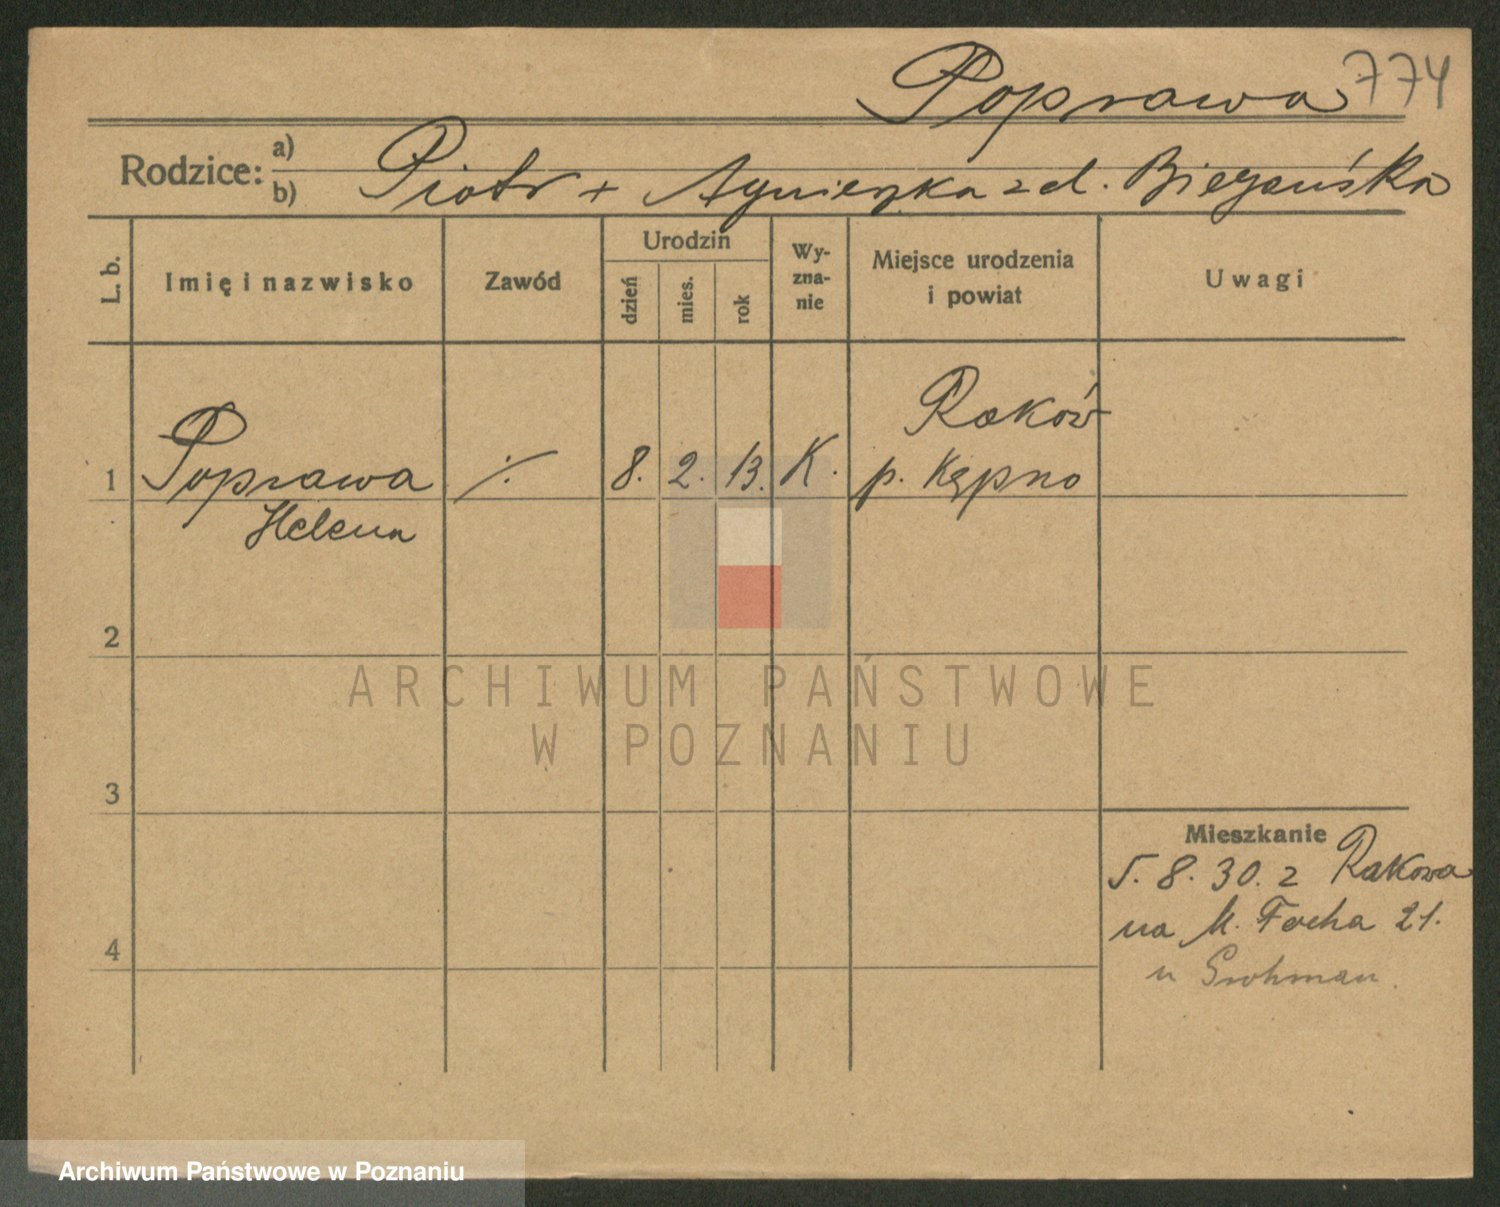 Poprawa 774
Rodzice: a)
b) Piotr + Agnieszka z d. Biegańska
L. b. Imię i nazwisko Zawód Urodzin dzień mies. rok Wy-zna-nie Miejsce urodzenia i powiat Uwagi
1 Poprawa Helena ·/· 8. 2. 13. K. Raków p. Kępno
2
3
4
Mieszkanie
5. 8. 30. z Rakowa
na M. Focha 21.
u Grohman.
ARCHIWUM PAŃSTWOWE
W POZNANIU
Archiwum Państwowe w Poznaniu